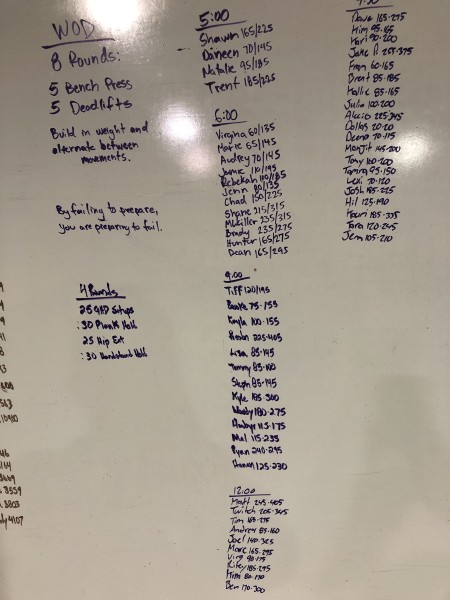 WOD
8 Rounds:
5 Bench Press
5 Deadlifts
Build in weight and
alternate between
movements.
By failing to prepare,
you are preparing to fail.
4 Rounds
25 GHD Situps
:30 Plank Hold
25 Hip Ext
:30 Handstand Hold
5:00
Shawn 165/225
Doreen 70/145
Natalie 95/185
Trent 185/225
6:00
Virginia 60/135
Marie 65/145
Audrey 70/145
Jamie 110/195
Rebekah 110/185
Jenn 80/135
Chad 150/225
Shane 215/315
McKiller 235/315
Brady 235/275
Hunter 165/275
Dean 165/295
9:00
Tiff 120/195
75-155
Kayla 100-155
225-405
Lisa 85-145
Tammy 85-100
Steph 85-145
Kyle 185-300
Woody 180-275
115-175
Mal 115-235
Ryan 240-295
Hannah 125-230
12:00
Matt 245-405
Twitch 205-345
Tim 165-275
Andrea 85-160
Joel 140-325
Marc 165-295
Virg 90-175
Riley 185-295
Mimi 80-170
Ben 170-300
Dave 165-275
Kim 95-165
Kari 90-200
Jake R. 255-375
Fran 60-165
Brent 85-185
Kallie 85-165
Julie 100-200
Alecio 225-345
Dallas 20-20
Deena 70-115
Manjit 145-200
Tony 100-200
Tamra 95-150
Lexi 70-120
Josh 185-225
Hil 125-190
185-335
Tara 120-245
Jem 105-210